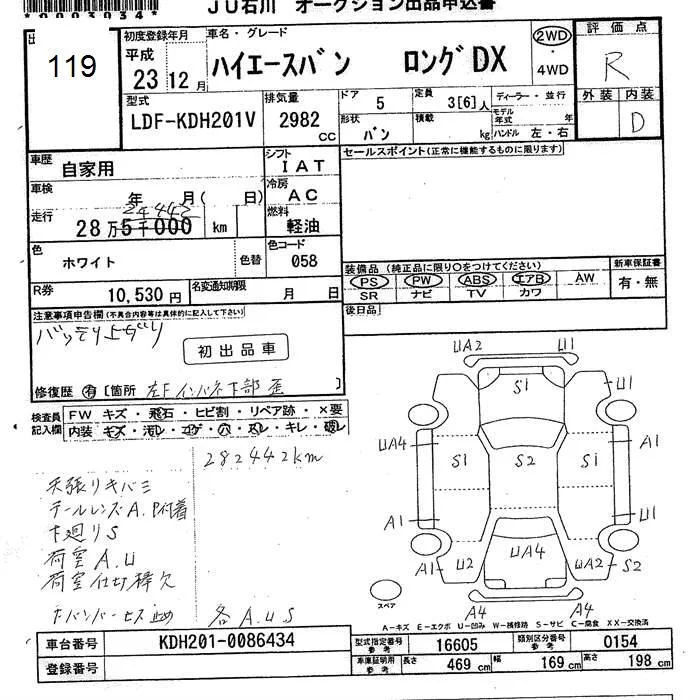 *0003034*
JU石川 オークション出品申込書
119
初度登録年月
平成
23 12 月
車名・グレード
ハイエースバン ロングDX
2WD
・
4WD
評価点
R
外装 内装
D
型式
LDF-KDH201V
排気量
2982 cc
ドア 5
形状 バン
定員 3[6]人
積載 kg
ディーラー・並行
モデル年式 年
ハンドル 左・右
車歴 自家用
シフト IAT
セールスポイント(正常に機能するものに限ります)
車検 年 月( 日)
冷房 AC
24442
走行 28万5千000 km
燃料 軽油
色 ホワイト 色替
色コード 058
装備品(純正品に限り○をつけてください)
新車保証書
PS PW ABS エアB AW
有・無
SR ナビ TV カワ
R券 10,530円
名変通知期限 月 日
後日品
注意事項申告欄(不具合内容等は具体的に記入して下さい)
バッテリ上ガリ
初出品車
修復歴 有 [箇所 左Fインパネ下部歪]
検査員記入欄
FW キズ・飛石・ヒビ割・リペア跡・×要
内装 キズ・汚レ・コゲ・穴・スレ・キレ・破レ
282442km
天張リキバミ
テールレンズA.P付着
下廻リS
荷室A.U
荷室仕切棒欠
各A.U.S
UA2 U1
S1
U1
UA4 S1 S2 S1 A1
A1 U1
A1 U2 UA4 UA2 S2
A4 A4
スペア
A−キズ E−エクボ U−凹み W−補修跡 S−サビ C−腐食 XX−交換済
車台番号 KDH201-0086434
型式指定番号 参考 16605
類別区分番号 参考 0154
登録番号
車庫証明用 参考 長さ 469 cm 幅 169 cm 高さ 198 cm